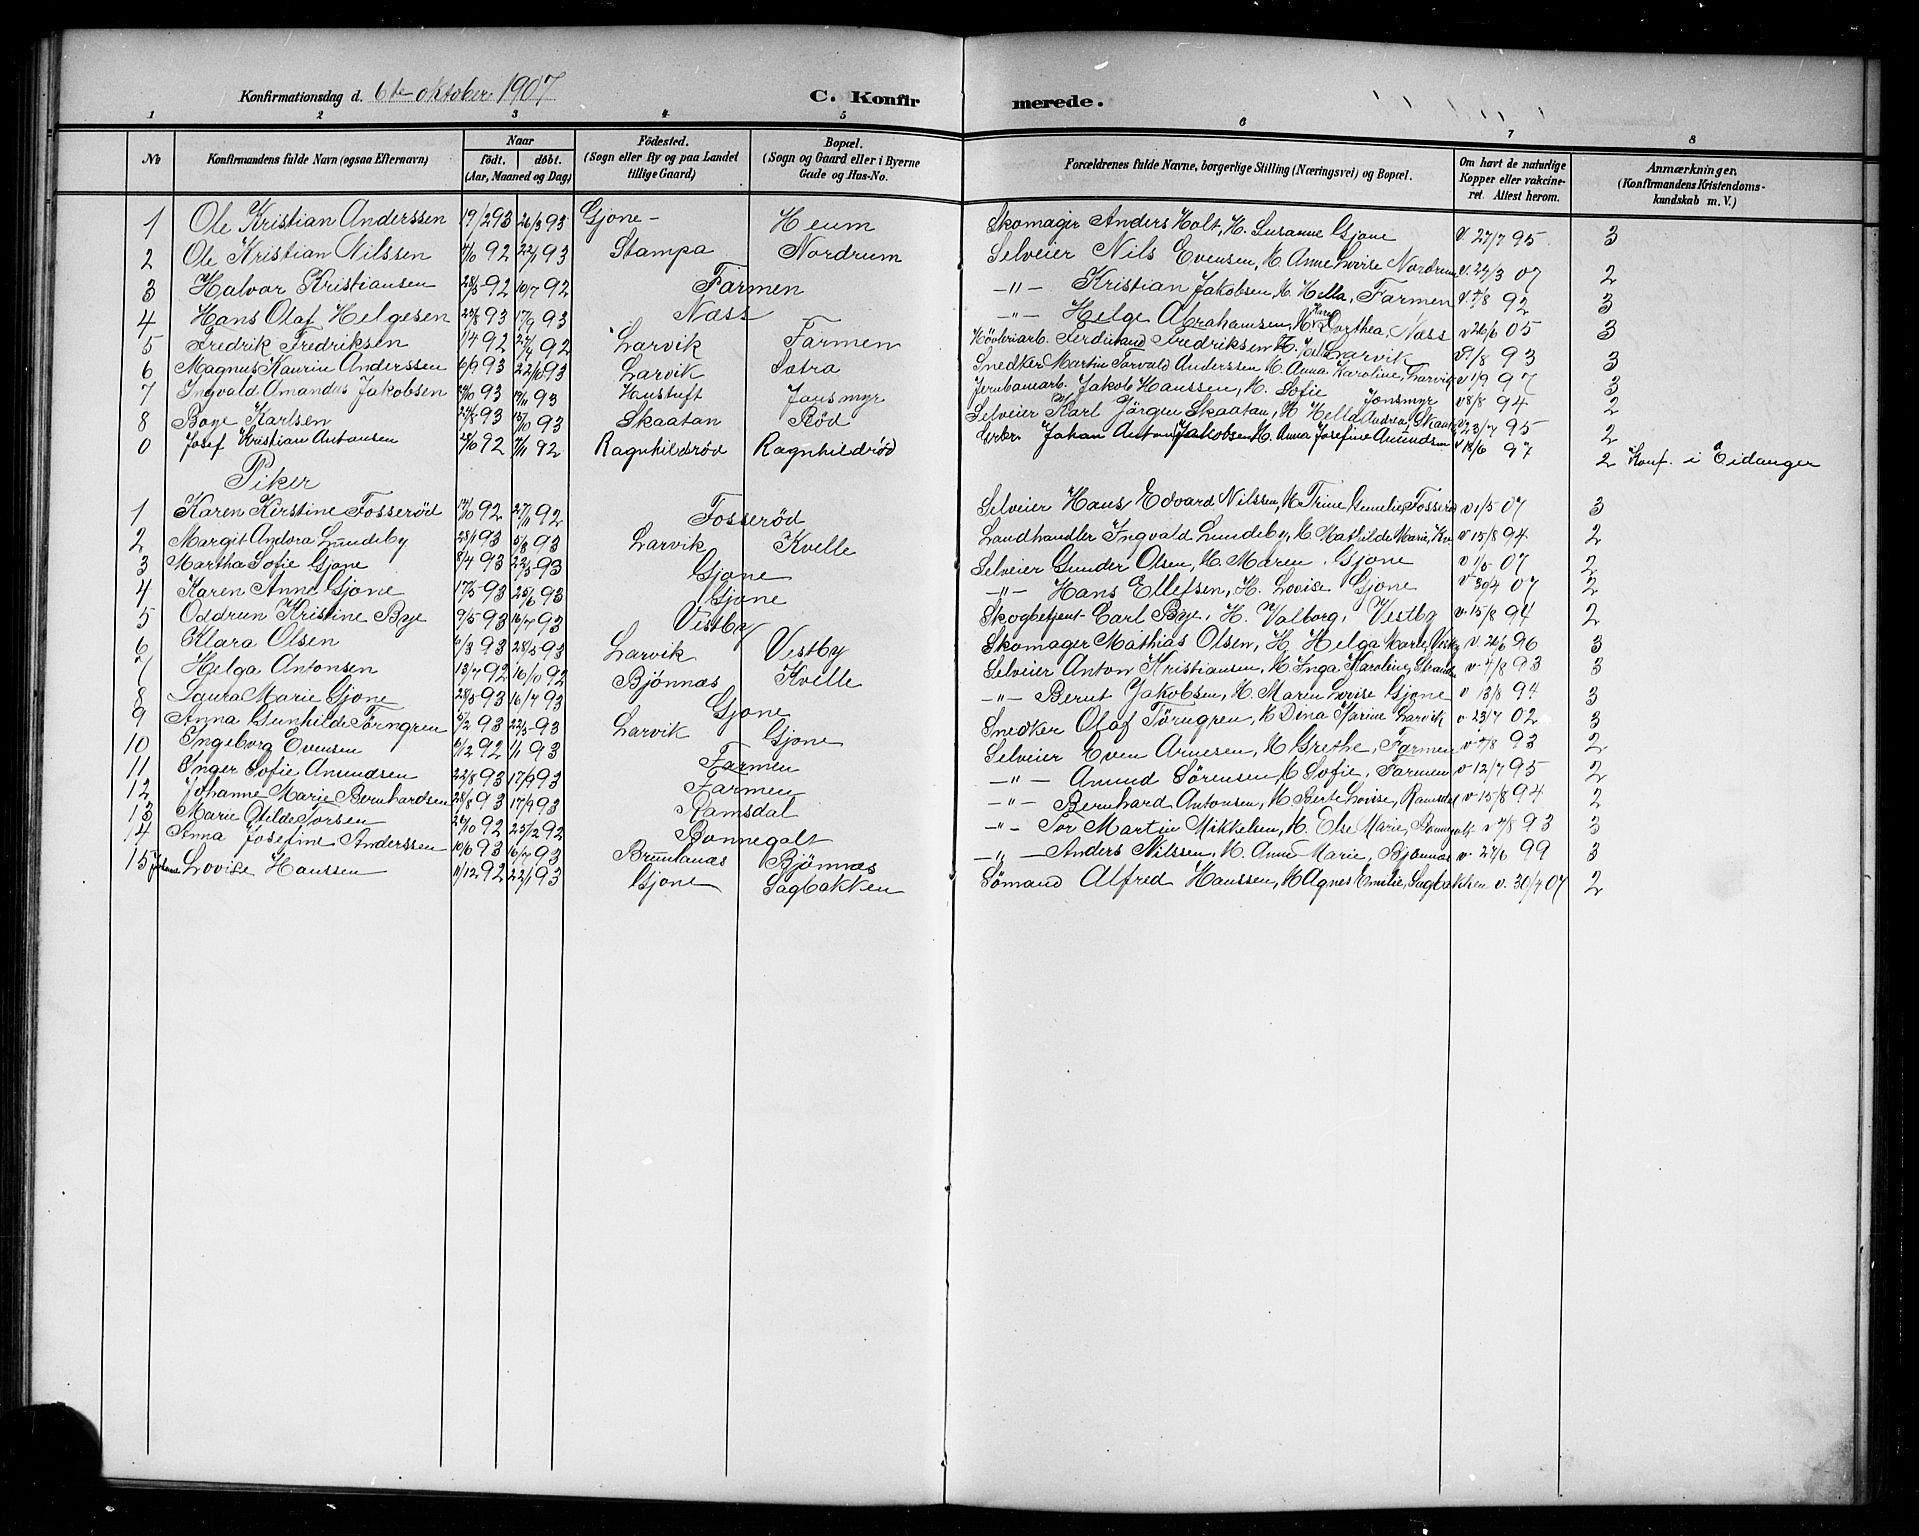 Konfirmationsdag d. 6te oktober 1907
C. Konfirmerede.
1 2 3 4 5 6 7 8
No
Konfirmandens fulde Navn (ogsaa Efternavn)
Naar
födt. döbt.
(Aar, Maaned og Dag)
Födested.
(Sogn eller By og paa Landet
tillige Gaard)
Bopæl.
(Sogn og Gaard eller i Byerne
Gade og Hus-No.
Forældrenes fulde Navne, borgerlige Stilling (Næringsvei) og Bopæl.
Om havt de naturlige
Kopper eller vakcine-
ret. Attest herom.
Anmærkninger,
(Konfirmandens Kristendoms-
kundskab m. V.)
1 Ole Kristian Anderssen 19/2 93 26/3 93 Gjone - Heum Skomager Anders Holt, H. Susanne Gjone v. 27/7 95 3
2 Ole Kristian Nilssen 92 22/1 93 Stampa Nordrum Selveier Nils Evensen, H. Anne Lovise Nordrum v. 22/3 07 2
3 Halvor Kristiansen 28/5 92 10/7 92 Farmen -"- Kristian Jakobsen H. Hella, Farmen 92 3
4 Hans Olaf Helgesen 93 17/9 93 Næss -"- Helge Abrahamsen, H. Dorthea, Næss v 26/6 05 3
5 Fredrik Fredriksen 1/4 92 92 Larvik Farmen Høvleriarb. Ferdinand Fredriksen H. Larvik 93 3
6 Magnus Kaurin Anderssen 6/9 93 22/10 93 Larvik Sotra Snedker Martin Torvald Anderssen H. Anna Karoline, Larvik v 1/9 97 3
7 Ingvald Amandus Jakobsen 93 93 Hustuft Jansmyr Jernbanearb. Jakob Hanssen, H. Sofie Jonsmyr v 8/8 94 2
8 Boye Karlsen 93 15/10 93 Skaatan Rød Selveier Karl Jörgen Skaatan, H. Hella Andrea, Skaatan v 23/7 95 2
0 Josef Kristian Antonsen 28/10 92 92 Ragnhildsrød Ragnhildrød Johan Anton Jakobsen H. Anna Josefine Amundsen 97 2 Konf. i Eidanger
Piker
1 Karen Kirstine Fosserød 92 27/11 92 Fosserød Selveier Hans Edvard Nilssen, H. Trine Gunelie Fosserød v 1/5 07 3
2 Margit Andora Lundeby 28/1 93 5/8 93 Larvik Kvelle Landhandler Ingvald Lundeby, H. Mathilde Marie, Kv v 15/8 94 2
3 Martha Sofie Gjone 8/4 93 22/5 93 Gjone Selveier Gunder Olsen, H. Maren, Gjone v 1/5 07 2
4 Karen Anne Gjone 17/5 93 25/6 93 Gjone -"- Hans Ellefsen, H. Lovise Gjone v 30/4 07 2
5 Oddrun Kristine Bye 9/5 93 16/7 93 Vestby Skogbetjent Carl Bye, H. Valborg, Vestby v. 15/8 94 2
6 Klara Olsen 93 28/5 93 Larvik Vestby Skomager Mathias Olsen, H. Helga Marie, v. 26/6 96 3
7 Helga Antonsen 13/7 92 16/10 92 Bjönnæs Kvelle Selveier Anton Kristiansen, H. Inga Karoline, v 4/8 93 3
8 Laura Marie Gjone 28/5 93 16/7 93 Gjone -"- Bernt Jakobsen, H. Maren Lovise Gjone v 13/8 94 3
9 Anna Gunhilde Törngren 93 22/5 93 Larvik Gjone Snedker Olaf Törngren, H. Dina Karine Larvik v 23/7 02 3
10 Ingeborg Evensen 92 1/1 93 Farmen Selveier Even Arnesen, H. Grethe, Farmen 93 2
11 Inger Sofie Amundsen 22/8 93 17/9 93 Farmen -"- Amund Sörensen, H. Sofie, Farmen v 12/7 95 2
12 Johanne Marie Bernhardsen 28/8 93 17/9 93 Ramsdal -"- Bernhard Antonsen, H. Berte Lovise, Ramsdal v 15/8 94 2
13 Marie Otilde Torsen 92 92 Bonnegolt -"- Tor Martin Mikkelsen, H. Else Marie, 93 3
14 Anna Josefine Anderssen 10/6 93 16/7 93 Brunlanæs Bjönnæs -"- Anders Nilssen, H. Anne Marie, Bjönnæs 99 3
15 Lovise Hanssen 11/12 92 22/1 93 Gjone Sagbakken Sømand Alfred Hanssen, H. Agnes Emilie, Sagbakken v. 30/4 07 2